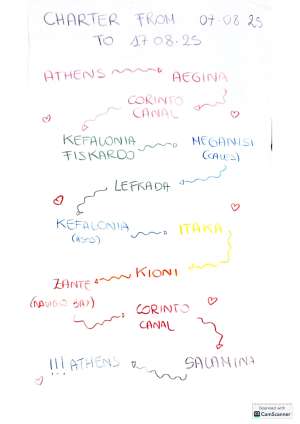 CHARTER FROM 07-08 25
TO 17-08-25
ATHENS AEGINA
CORINTO
CANAL
KEFALONIA MEGANISI
FISKARDO (CAVES)
LEFKADA
KEFALONIA ITAKA
(ASSO)
ZANTE KIONI
(NAVIGO BAY) CORINTO
CANAL
!!! ATHENS SALAMINA
Scanned with
CamScanner